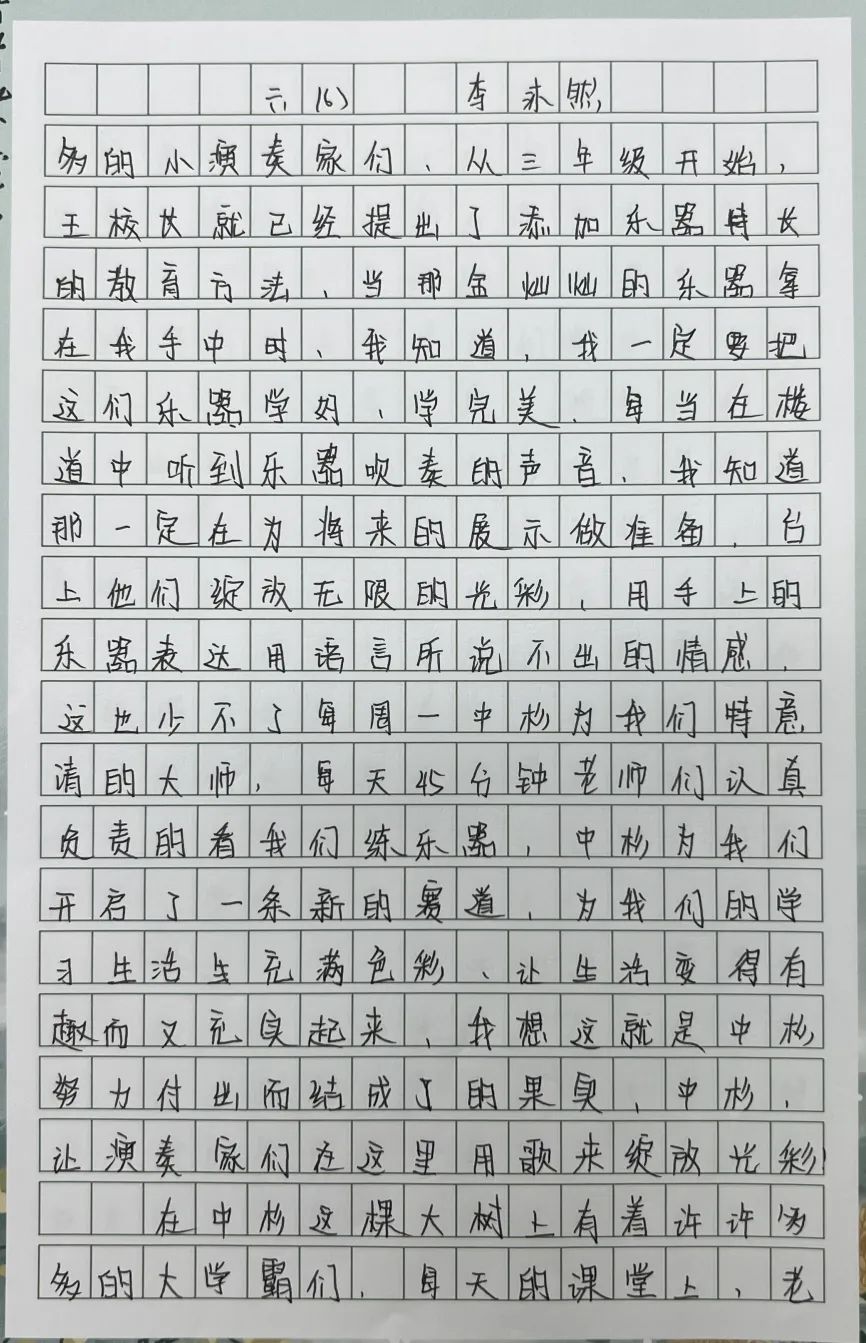 六(6) 李永熙
多的小演奏家们、从三年级开始，
王校长就已经提出了添加乐器特长
的教育方法、当那金灿灿的乐器拿
在我手中时、我知道，我一定要把
这们乐器学好、学完美、每当在楼
道中听到乐器吹奏的声音、我知道
那一定在为将来的展示做准备，台
上他们绽放无限的光彩、用手上的
乐器表达用语言所说不出的情感、
这也少不了每周一中杉为我们特意
请的大师，每天45分钟老师们认真
负责的看我们练乐器，中杉为我们
开启了一条新的赛道，为我们的学
习生活生充满色彩、让生活变得有
趣而又充实起来、我想这就是中杉
努力付出而结成了的果实、中杉，
让演奏家们在这里用歌来绽放光彩!
在中杉这棵大树上有着许许多
多的大学霸们，每天的课堂上、老